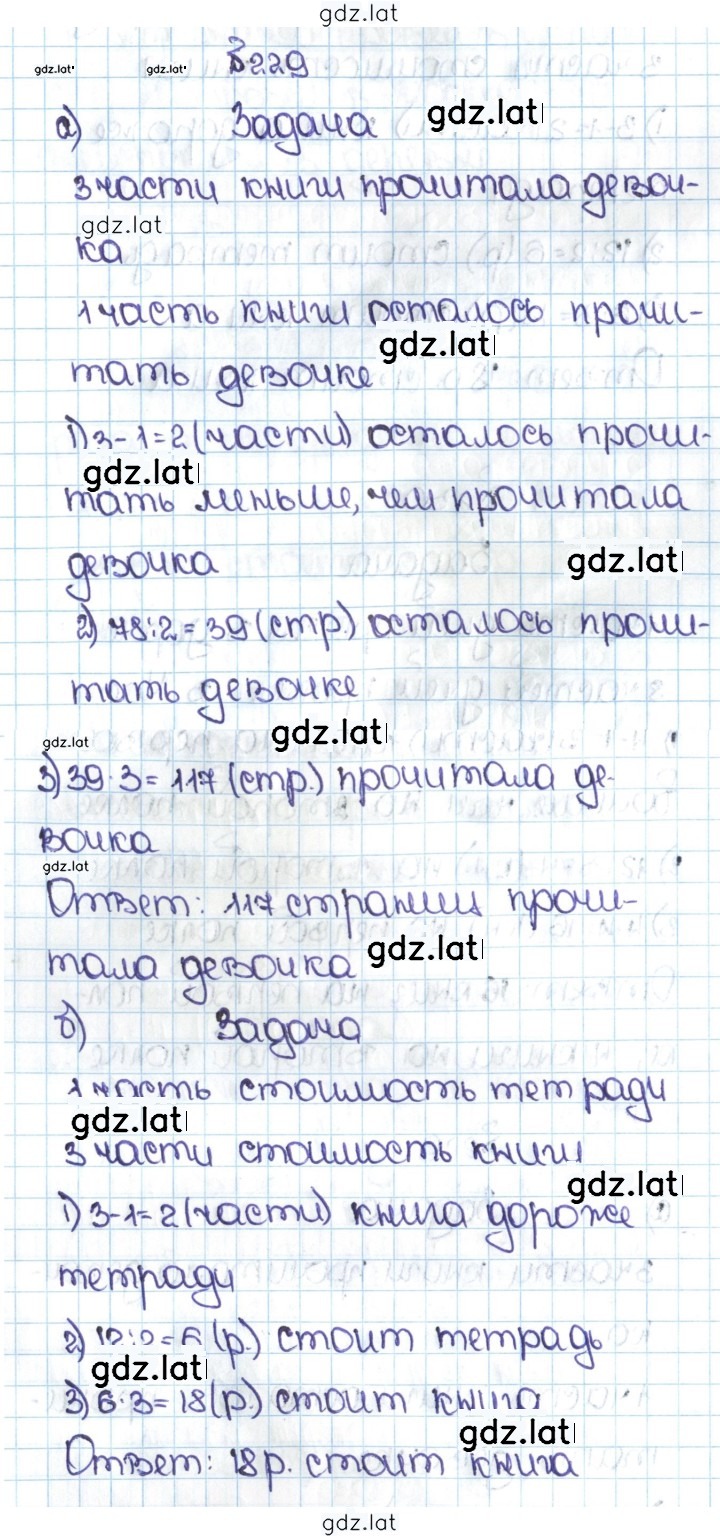 gdz.lat
gdz.lat gdz.lat 229
а) Задача gdz.lat
3 части книги прочитала девоч-
gdz.lat
ка
1 часть книги осталось прочи-
gdz.lat
тать девочке
1) 3-1=2 (части) осталось прочи-
gdz.lat
тать меньше, чем прочитала
девочка gdz.lat
2) 78:2=39 (стр.) осталось прочи-
тать девочке
gdz.lat gdz.lat
3) 39·3=117 (стр.) прочитала де-
вочка
gdz.lat
Ответ: 117 страниц прочи-
тала девочка gdz.lat
б) Задача
1 часть стоимость тетради
gdz.lat
3 части стоимость книги
gdz.lat
1) 3-1=2 (части) книга дороже
тетради
2) 12:2=6 (р.) стоит тетрадь
gdz.lat
3) 6·3=18 (р.) стоит книга
gdz.lat
Ответ: 18 р. стоит книга
gdz.lat